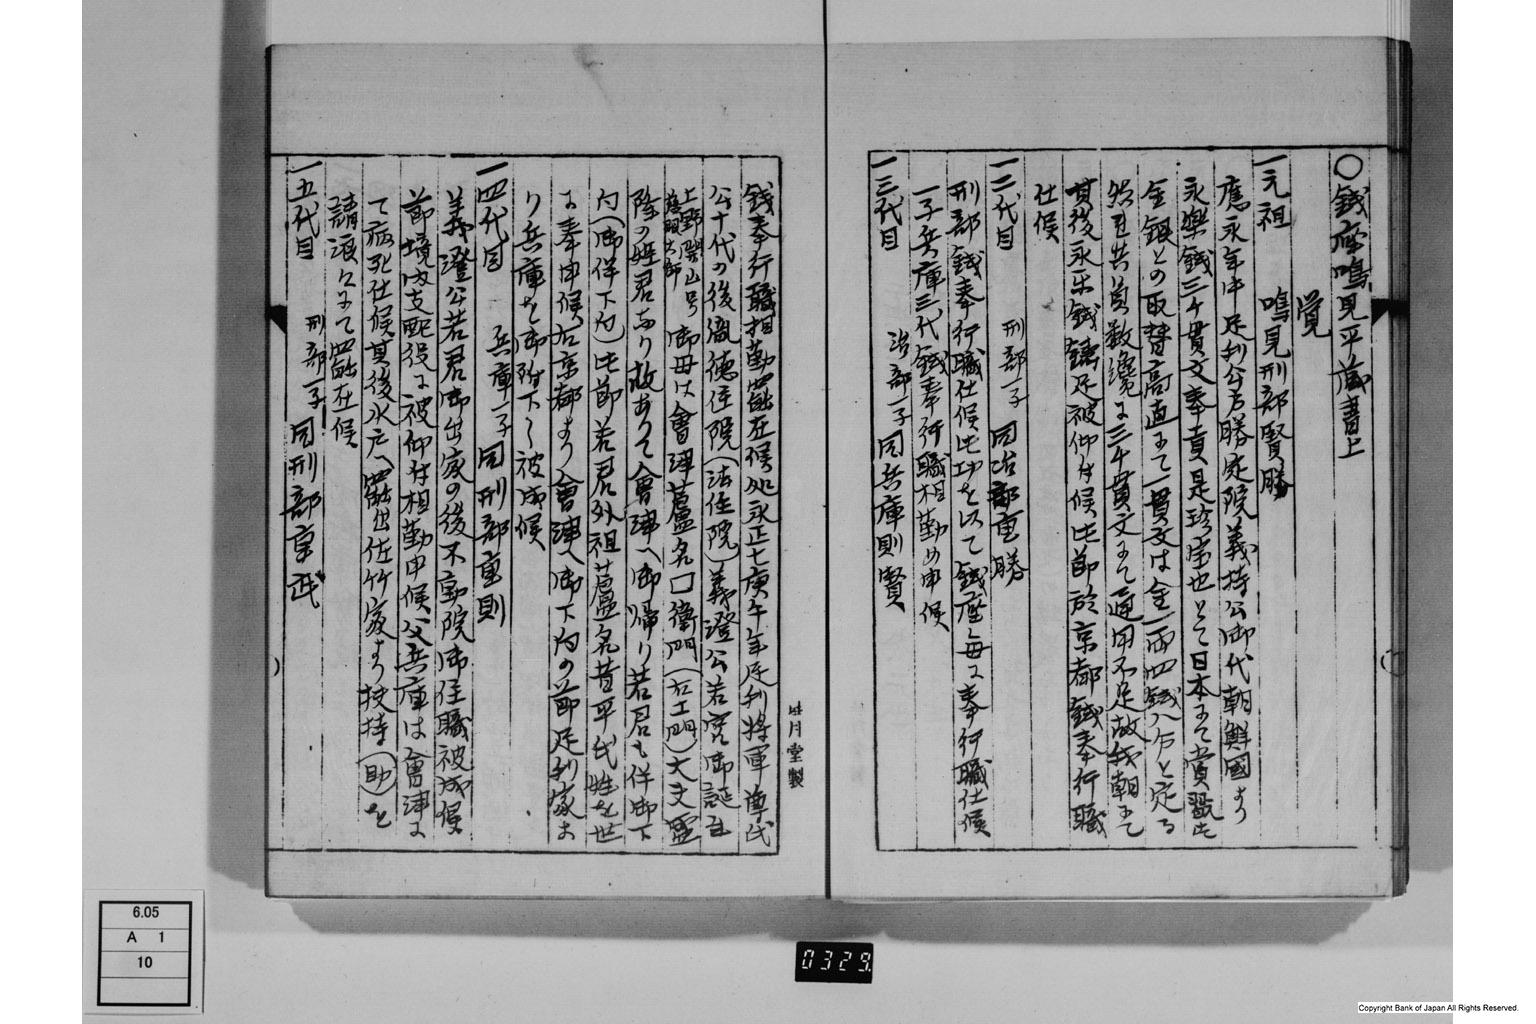 ○銭座鳴見平蔵書上
覚
一元祖 鳴見刑部賢勝
應永年中足利公方勝定院義持公御代朝鮮國より
永樂銭三千貫文奉貢是珍宝也とて日本にて賞翫せ
金銀との取替高直にて一貫文は金一両四銭八分と定る
然れ共員数纔に三千貫文にて通用不足故我朝にて
其後永楽銭鋳足被仰付候此節於京都銭奉行職
仕候
一二代目 刑部一子 同治部重勝
刑部銭奉行職仕候此功を以て銭座毎に奉行職仕候
一子兵庫三代銭奉行職相勤め申候
一三代目 治部一子 同兵庫則賢
銭奉行職相勤罷在候処永正七庚午年足利将軍尊氏
公十代の後胤徳住院(法住院)義澄公若君御誕生
上野開山号 慈眼大師 御母は會津蘆名口衛門(左工門)大夫霊
隆の姪君なり故ありて會津へ御帰り若君も伴御下
向(御伴下向)此節若君外祖蘆名昔平氏姓を世
に奉申候右京都より會津へ御下向の節足利家よ
り兵庫を御附下し被成候
一四代目 兵庫一子 同刑部重則
義澄公若君御出家の後不動院御住職被成候
節境内支配役に被仰付相勤申候父兵庫は會津に
て病死仕候其後水戸へ罷出佐竹家より扶持(助)を
請浪人にて罷在候
一五代目 刑部一子 同刑部重武
廿月堂製
6.05
A 1
10
0329.
Copyright Bank of Japan All Rights Reserved.